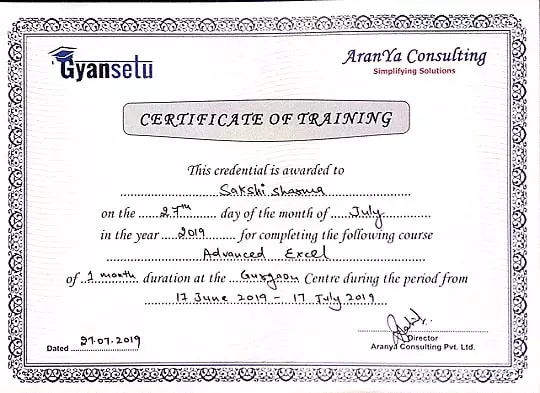 Gyansetu
AranYa Consulting
Simplifying Solutions
CERTIFICATE OF TRAINING
This credential is awarded to
Sakshi sharma
on the 27th day of the month of July
in the year 2019 for completing the following course
Advanced Excel
of 1 month duration at the Gurgaon Centre during the period from
17 June 2019 - 17 July 2019
Dated 27.07.2019
Director
Aranya Consulting Pvt. Ltd.